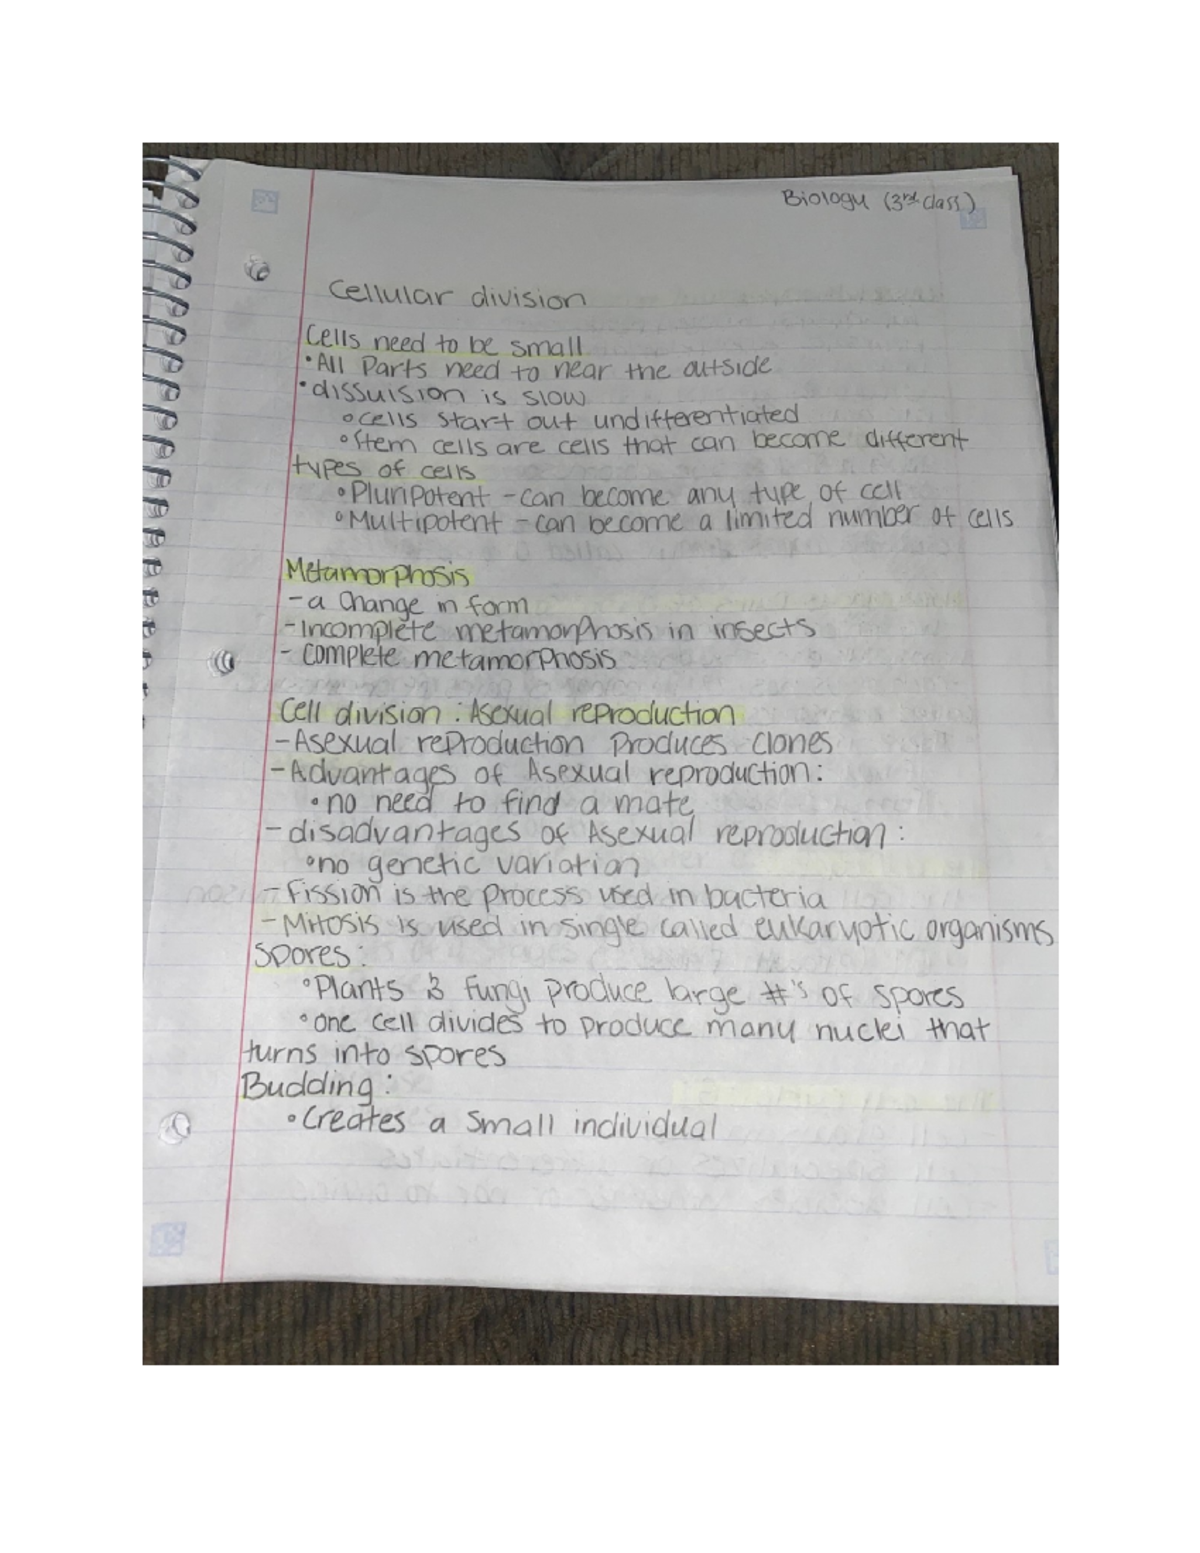 Biology (3rd class)
Cellular division
Cells need to be small
•All Parts need to near the outside
•dissuision is slow
°cells start out undifferentiated
°Stem cells are cells that can become different
types of cells
°Pluripotent - can become any type of cell
°Multipotent - can become a limited number of cells
Metamorphosis
- a change in form
- Incomplete metamorphosis in insects
- complete metamorphosis
Cell division : Asexual reproduction
- Asexual reproduction Produces clones
- Advantages of Asexual reproduction:
•no need to find a mate
- disadvantages of Asexual reproduction:
°no genetic variation
- Fission is the process used in bacteria
- Mitosis is used in single called eukaryotic organisms
Spores:
°Plants & fungi produce large #'s of spores
°one cell divides to produce many nuclei that
turns into spores
Budding:
•Creates a small individual